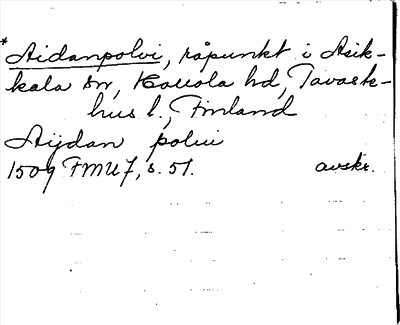 * Aidanpolvi, råpunkt i Asik-
kala sn, Hollola hd, Tavaste-
hus l., Finland
Aÿdan polui
1509 FMU 7, s. 51. avskr.